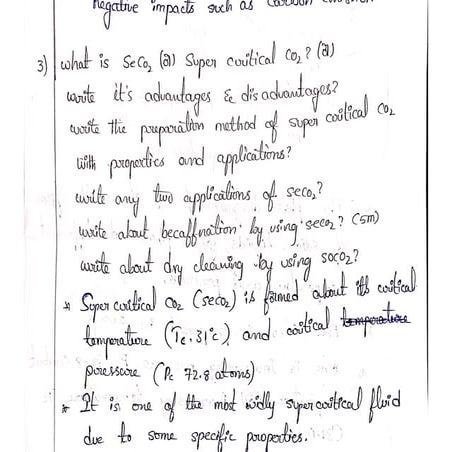 negative impacts such as carbon
3) what is SeCo₂ (a) Super coitical co₂? (a)
write it's advantages & disadvantages?
write the preparation method of super coitical co₂
with properties and applications?
write any two applications of seco₂?
write about becaffination by using seco₂? (5m)
write about dry cleaning by using soco₂?
* Super coitical co₂ (seco₂) is formed about its coitical
temperature (Tc. 31°c), and coitical temperature
poressure (Pc 72.8 atoms)
* It is one of the most widly supercoitical fluid
due to some specific properties.